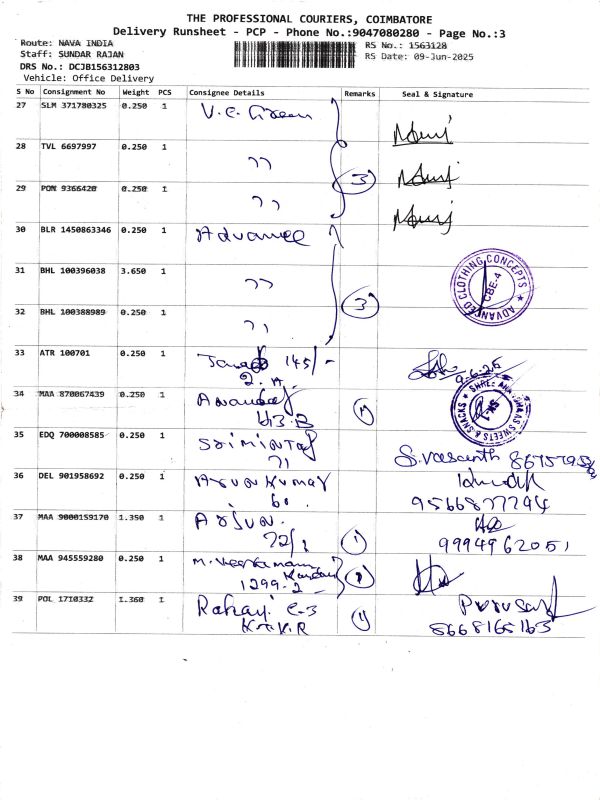 THE PROFESSIONAL COURIERS, COIMBATORE
Delivery Runsheet - PCP - Phone No.:9047080280 - Page No.:3
Route: NAVA INDIA
Staff: SUNDAR RAJAN
DRS No.: DCJB156312803
Vehicle: Office Delivery
RS No.: 1563128
RS Date: 09-Jun-2025
S No Consignment No Weight PCS Consignee Details Remarks Seal & Signature
27 SLM 371780325 0.250 1 V. C. Green
28 TVL 6697997 0.250 1 ,,
29 PON 9366420 0.250 1 ,, 3
30 BLR 1450863346 0.250 1 Advance
31 BHL 100396038 3.650 1 ,, ADVANCED CLOTHING CONCEPTS CBE-4
32 BHL 100388989 0.250 1 ,, 3
33 ATR 100701 0.250 1 145/- 9.6.25
34 MAA 870067439 0.250 1 SWEETS & SNACKS
H3.B
35 EDQ 700008585 0.250 1 S. Vasanth
71
36 DEL 901958692 0.250 1 Arun Kumar
60 9566877794
37 MAA 9000159170 1.350 1 Arjun. 1
72/1 9994962051
38 MAA 945559280 0.250 1
1299-2
39 POL 1710332 1.360 1 C-3 1
K.K.R 8668165163